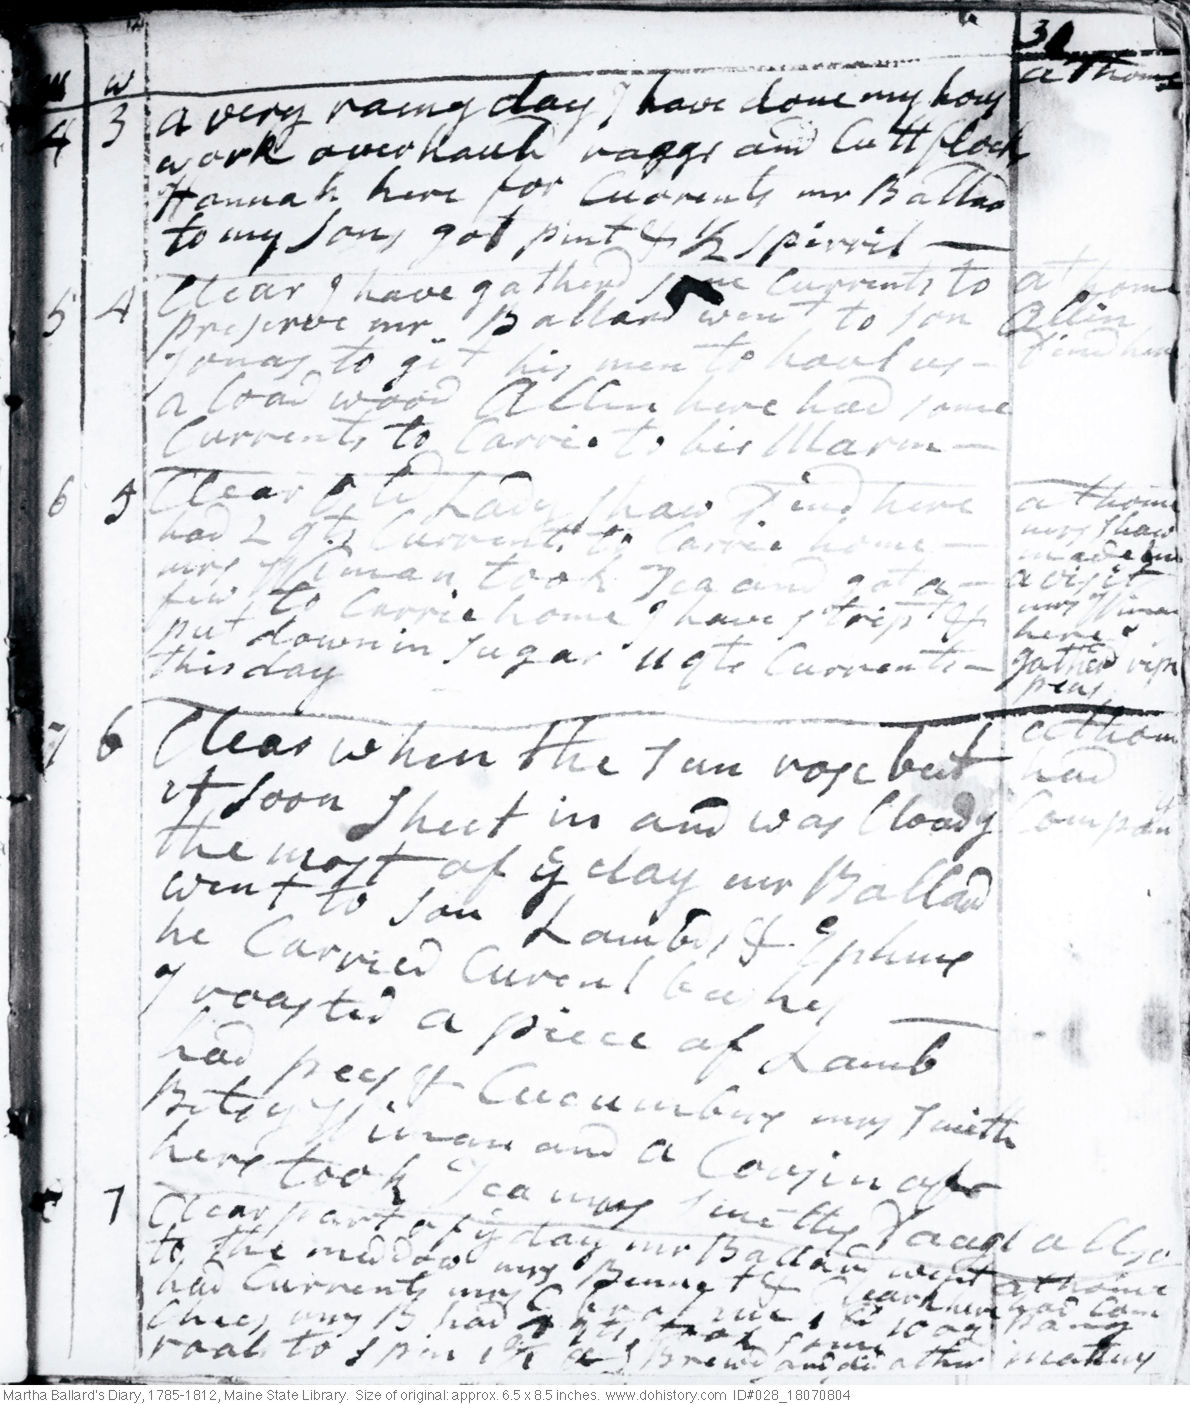 m w
4 3 a very raeny day I have done my hous
work overhauld raggs and Cutt flocks
Hannah here for Currents mr Ballard
to my Sons got pint & 1/2 spirril
at home
5 4 Clear I have gatherd some Currents to
preserve mr Ballard went to son
Jonas to git his men to haul us
a load wood Allin here had some
Currents to Carrie to his Marm
at home
Allin
Pind here
6 5 Clear old Lady Shaw Pind here
had 2 qts Currents to Carrie home
mrs took Tea and got a
few to Carrie home I have stript &
put down in Sugar 11 qts Currents
this day
at home
mrs Shaw
made me
a visit
mrs
here
gatherd ripe
peas
7 6 Clear when the sun rose but
it soon Sheet in and was Cloudy
the most of ye day mr Ballard
went to son Lambds & Ephms
he Carried Curent bushes
I roasted a piece of Lamb
had pees & Cucumbers mrs Smith
Betsy and a Cousin of
hers took Tea mrs Smiths Daag allso
at hom
had
Compan
7 Clear part of ye day mr Ballard went
to the meddow mrs Bennet & here
had Currents mrs
Chees mrs B had took some
roals to spin I Brewd and did other matters
at home
had Com
pany
Martha Ballard's Diary, 1785-1812, Maine State Library. Size of original: approx. 6.5 x 8.5 inches. www.dohistory.com ID#028_18070804